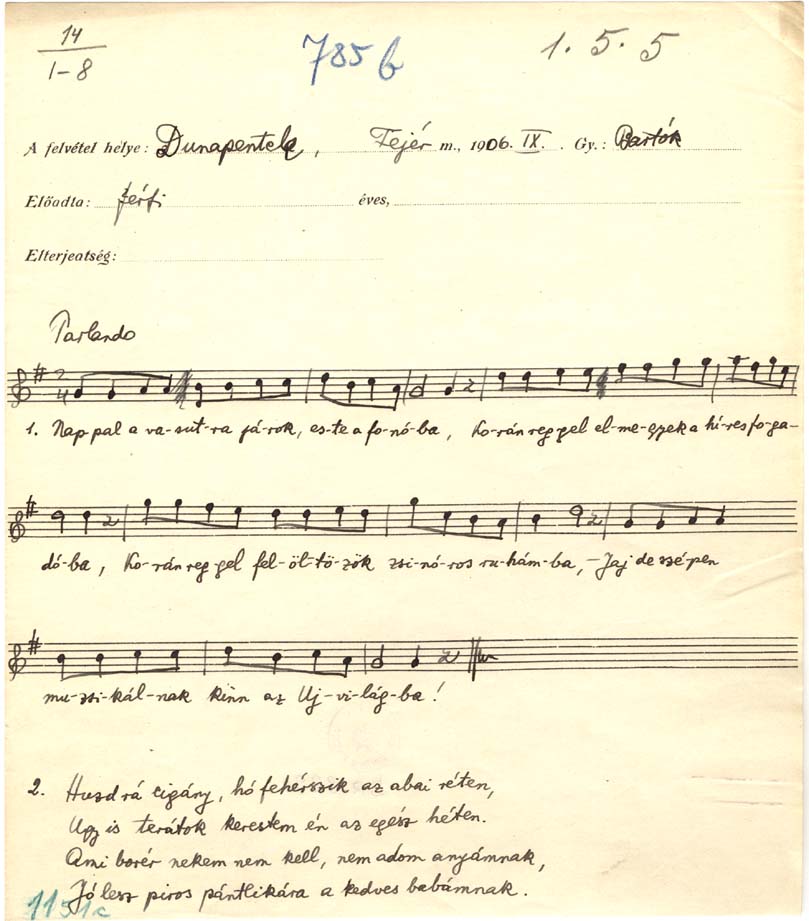 14
1-8
785 b
1. 5. 5
A felvétel helye: Dunapentele, Fejér m., 1906. IX. . Gy.: Bartók
Előadta: férfi éves,
Elterjedtség:
Parlando
2/4
1. Nap-pal a va-sut-ra já-rok, es-te a fo-nó-ba, Ko-rán reg-gel el-me-gyek a hí-res fo-ga-
dó-ba, Ko-rán reg-gel fel-öl-tö-zök zsi-nó-ros ru-hám-ba, - Jaj de szé-pen
mu-zsi-kál-nak kinn az Uj-vi-lág-ba!
2. Huzd rá cigány, hó fehérszik az abai réten,
Ugy is terátok kerestem én az egész héten.
Ami borér nekem nem kell, nem adom anyámnak,
Jó lesz piros pántlikára a kedves babámnak.